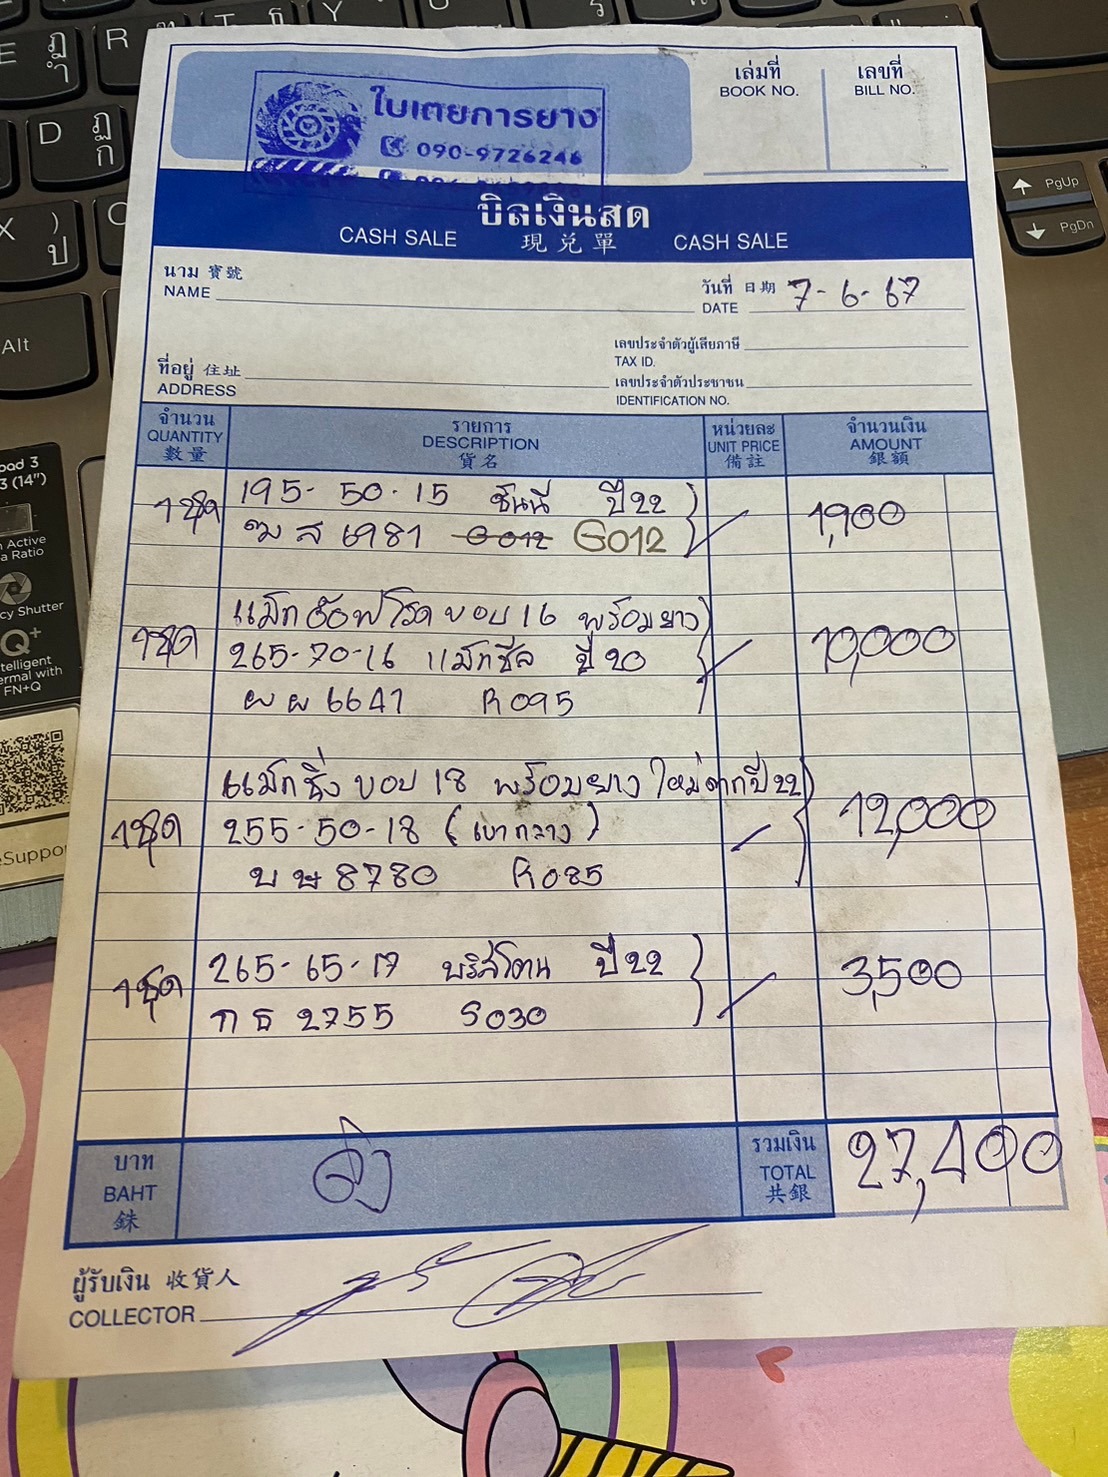 เล่มที่
BOOK NO.
เลขที่
BILL NO.
ใบเตยการยาง
090-9726246
บิลเงินสด
CASH SALE 現兑單 CASH SALE
นาม 寶號
NAME
วันที่ 日期 7-6-67
DATE
เลขประจำตัวผู้เสียภาษี
TAX ID.
ที่อยู่ 住址
ADDRESS
เลขประจำตัวประชาชน
IDENTIFICATION NO.
จำนวน รายการ หน่วยละ จำนวนเงิน
QUANTITY DESCRIPTION UNIT PRICE AMOUNT
數量 貨名 備註 銀額
1ชุด 195-50-15 ซันนี่ ปี22 1,900
ฒ ส 6981 G012 G012
แม็กอ๊อฟโรดขอบ 16 พร้อมยาง
1ชุด 265-70-16 แม็กซีส ปี 20 10,000
ผ ผ 6647 R095
แม็กซิ่ง ขอบ 18 พร้อมยาง ใหม่ตากปี 22
1ชุด 255-50-18 (เบากลาง) 12,000
บ ษ 8780 R085
1ชุด 265-65-17 บริสโตน ปี22 3,500
ก ธ 2755 S030
บาท
BAHT
銖
รวมเงิน
TOTAL
共銀
27,400
ผู้รับเงิน 收貨人
COLLECTOR
E ฎ ำ
R
T ธ
Y
D ฏ ก
X ) ป
C
Alt
PgUp
PgDn
3 (14")
Active
a Ratio
cy Shutter
Q+
telligent
ermal with
FN+Q
eSuppo